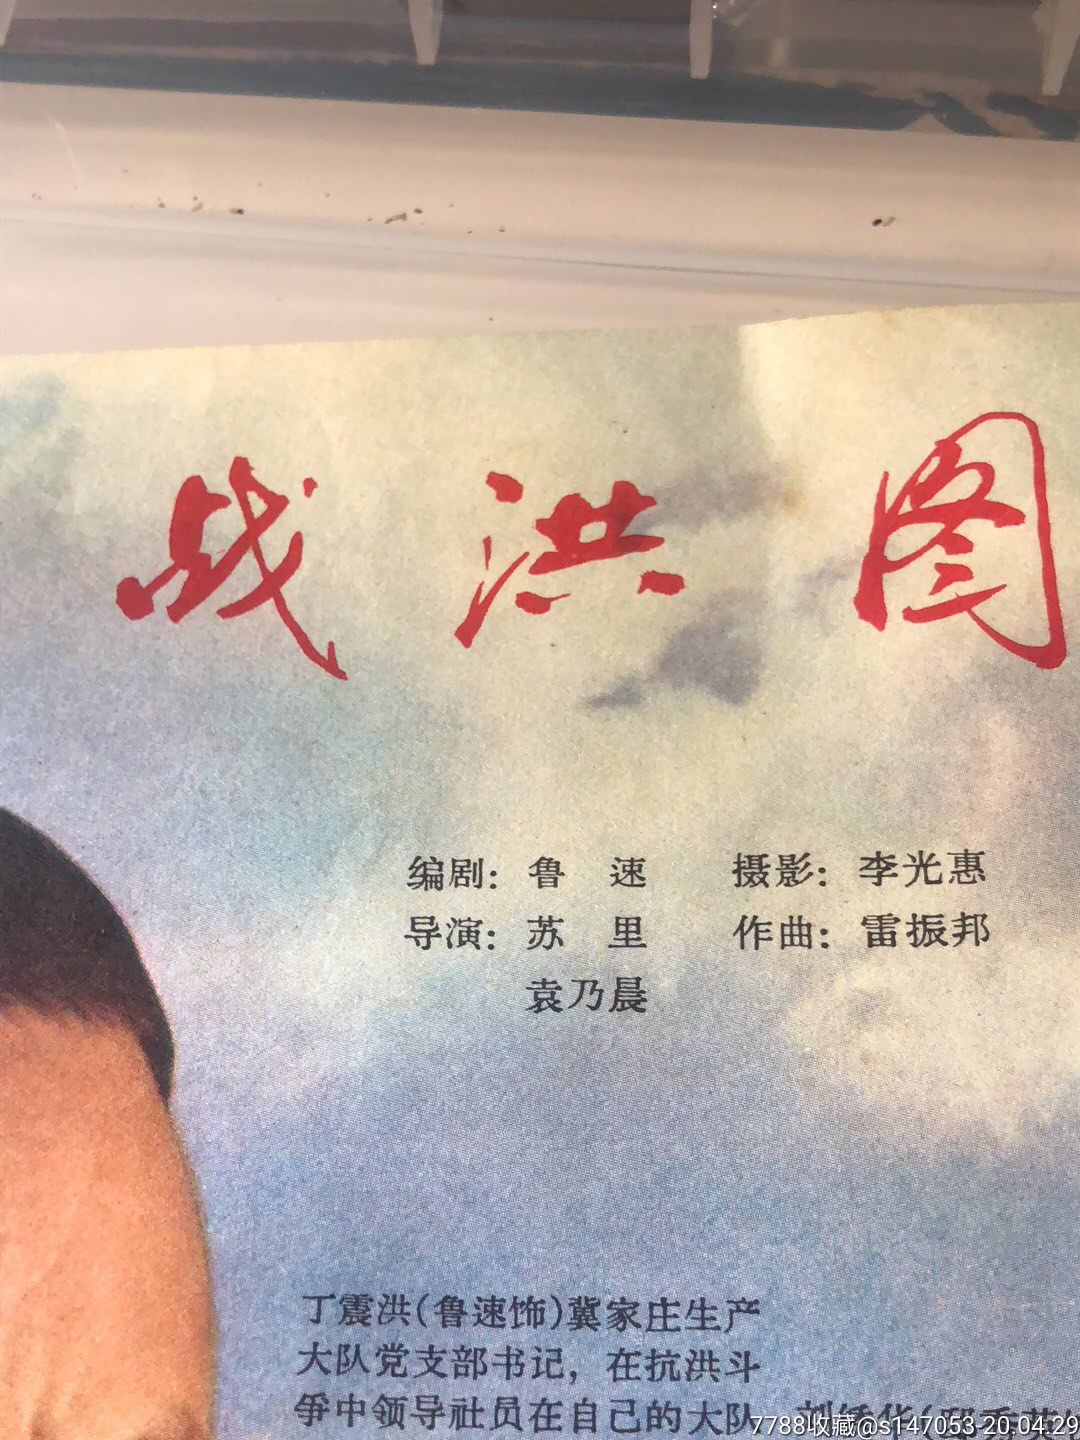 战洪图
编剧：鲁 速 摄影：李光惠
导演：苏 里 作曲：雷振邦
袁乃晨
丁震洪（鲁速饰）冀家庄生产
大队党支部书记，在抗洪斗
争中领导社员在自己的大队
7788收藏@s147053-20.04.29